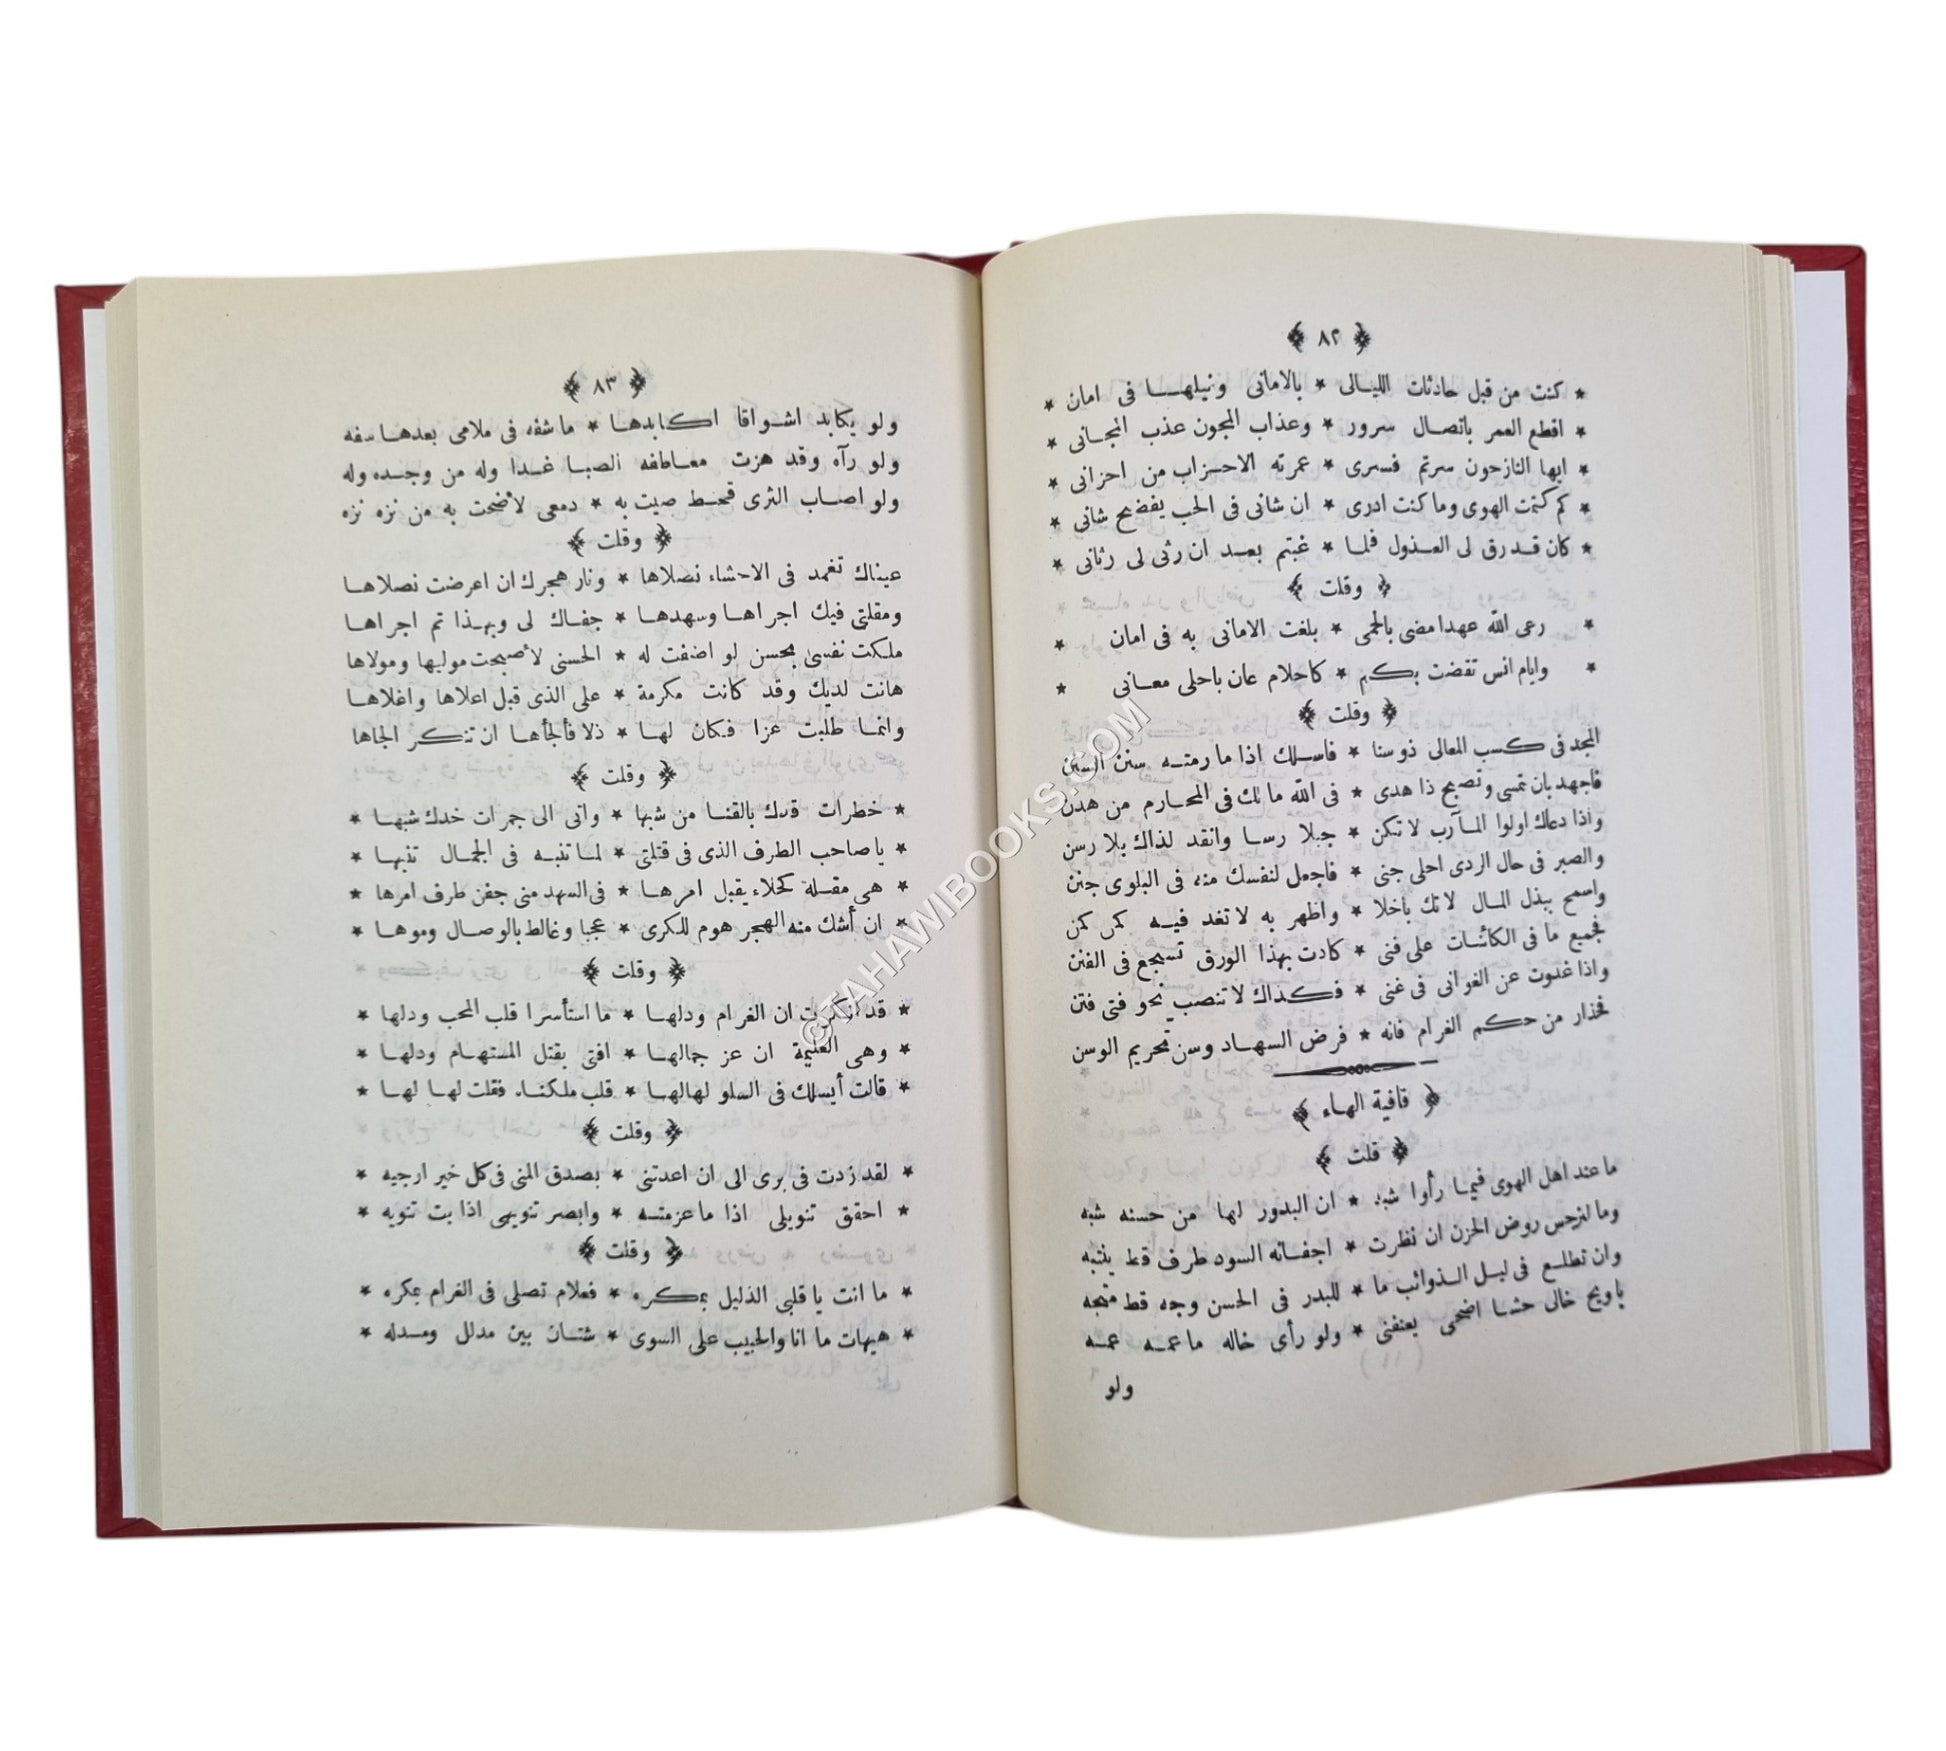 ﴿ ٨٢ ﴾
* كنت من قبل حادثات الليالى * بالامانى ونيلها فى امان *
* اقطع العمر باتصال سرور * وعذاب المجون عذب المجانى *
* ايها النازحون سرتم فسرى * عمرته الاحزاب من احزانى *
* كم كتمت الهوى وما كنت ادرى * ان شانى فى الحب يفضح شانى *
* كان قد رق لى العذول فلما * غبتم بعد ان رثى لى رثانى *
﴿ وقلت ﴾
* رعى الله عهدا مضى بالحمى * بلغت الامانى به فى امان *
* وايام انس تقضت بكم * كاحلام عان باحلى معانى *
﴿ وقلت ﴾
المجد فى كسب المعالى ذو سنا * فاسلك اذا ما رمته سنن السنن
فاجهد بان تمسى وتصبح ذا هدى * فى الله ما لك فى المحارم من هدن
واذا دعاك اولوا المآرب لا تكن * جبلا رسا وانقد لذاك بلا رسن
والصبر فى حال الردى احلى جنى * فاجعل لنفسك منه فى البلوى جنن
واسمح ببذل المال لا تك باخلا * واظهر به لا تغد فيه كمن كمن
فجميع ما فى الكائنات على فنى * كادت بهذا الورق تسجع فى الفنن
واذا غدوت عن الغوانى فى غنى * فكذاك لا تنصب نحو فتى فتن
فحذار من حكم الغرام فانه * فرض السهاد وسن تحريم الوسن
﴿ قافية الهاء ﴾
﴿ قلت ﴾
ما عند اهل الهوى فيما رأوا شبه * ان البدور لها من حسنه شبه
وما لنرجس روض الحزن ان نظرت * اجفانه السود طرف قط ينتبه
وان تطلع فى ليل الذوائب ما * للبدر فى الحسن وجه قط متجه
ياويح خالى حشا اضحى يعنفنى * ولو رأى خاله ما عمه عمه
ولو
﴿ ٨٣ ﴾
ولو يكابد اشواقا اكابدها * ما شفه فى ملامى بعدها سفه
ولو رآه وقد هزت معاطفه الصبا غدا وله من وجده وله
ولو اصاب الثرى قحط صيت به * دمعى لأضحت به من نزه نزه
﴿ وقلت ﴾
عيناك تغمد فى الاحشاء نصلاها * ونار هجرك ان اعرضت نصلاها
ومقلتى فيك اجراها وسهدها * جفاك لى وبهذا تم اجراها
ملكت نفسى بحسن لو اضفت له * الحسنى لأصبحت موليها ومولاها
هانت لديك وقد كانت مكرمة * على الذى قبل اعلاها واغلاها
وانما طلبت عزا فكان لها * ذلا فألجأها ان تنكر الجاها
﴿ وقلت ﴾
* خطرات قدك بالقنا من شبها * واتى الى جمرات خدك شبها *
* يا صاحب الطرف الذى فى قتلتى * لما تنبه فى الجمال تنبها *
* هى مقلة كحلاء يقبل امرها * فى السهد منى جفن طرف امرها *
* ان أشك منه الهجر هوم للكرى * عجبا وغالط بالوصال وموها *
﴿ وقلت ﴾
* قد انكرت ان الغرام ودلها * ما استأسرا قلب المحب ودلها *
* وهى العليمة ان عز جمالها * افتى بقتل المستهام ودلها *
* قالت أيسلك فى السلو لهالها * قلب ملكناه فقلت لها لها *
﴿ وقلت ﴾
* لقد زدت فى برى الى ان اعدتنى * بصدق المنى فى كل خير ارجيه *
* احقق تنويلى اذا ما عزمته * وابصر تنويهى اذا بت تنويه *
﴿ وقلت ﴾
* ما انت يا قلبى الذليل بمكره * فعلام تصلى فى الغرام بمكره *
* هيهات ما انا والحبيب على السوى * شتان بين مدلل ومدله *
©TAHAWIBOOKS.COM